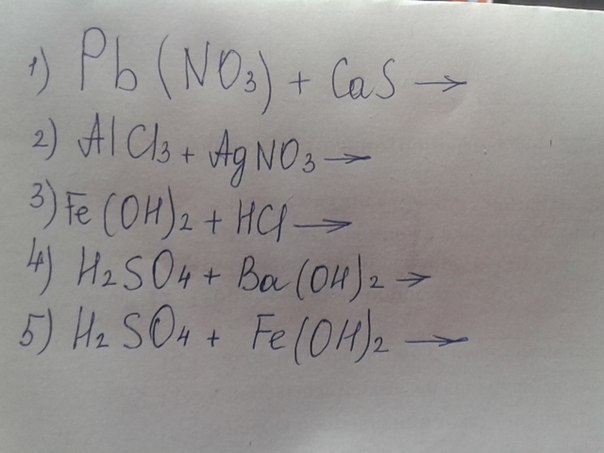 1) Pb(NO3) + CaS →
2) AlCl3 + AgNO3 →
3) Fe(OH)2 + HCl →
4) H2SO4 + Ba(OH)2 →
5) H2SO4 + Fe(OH)2 →